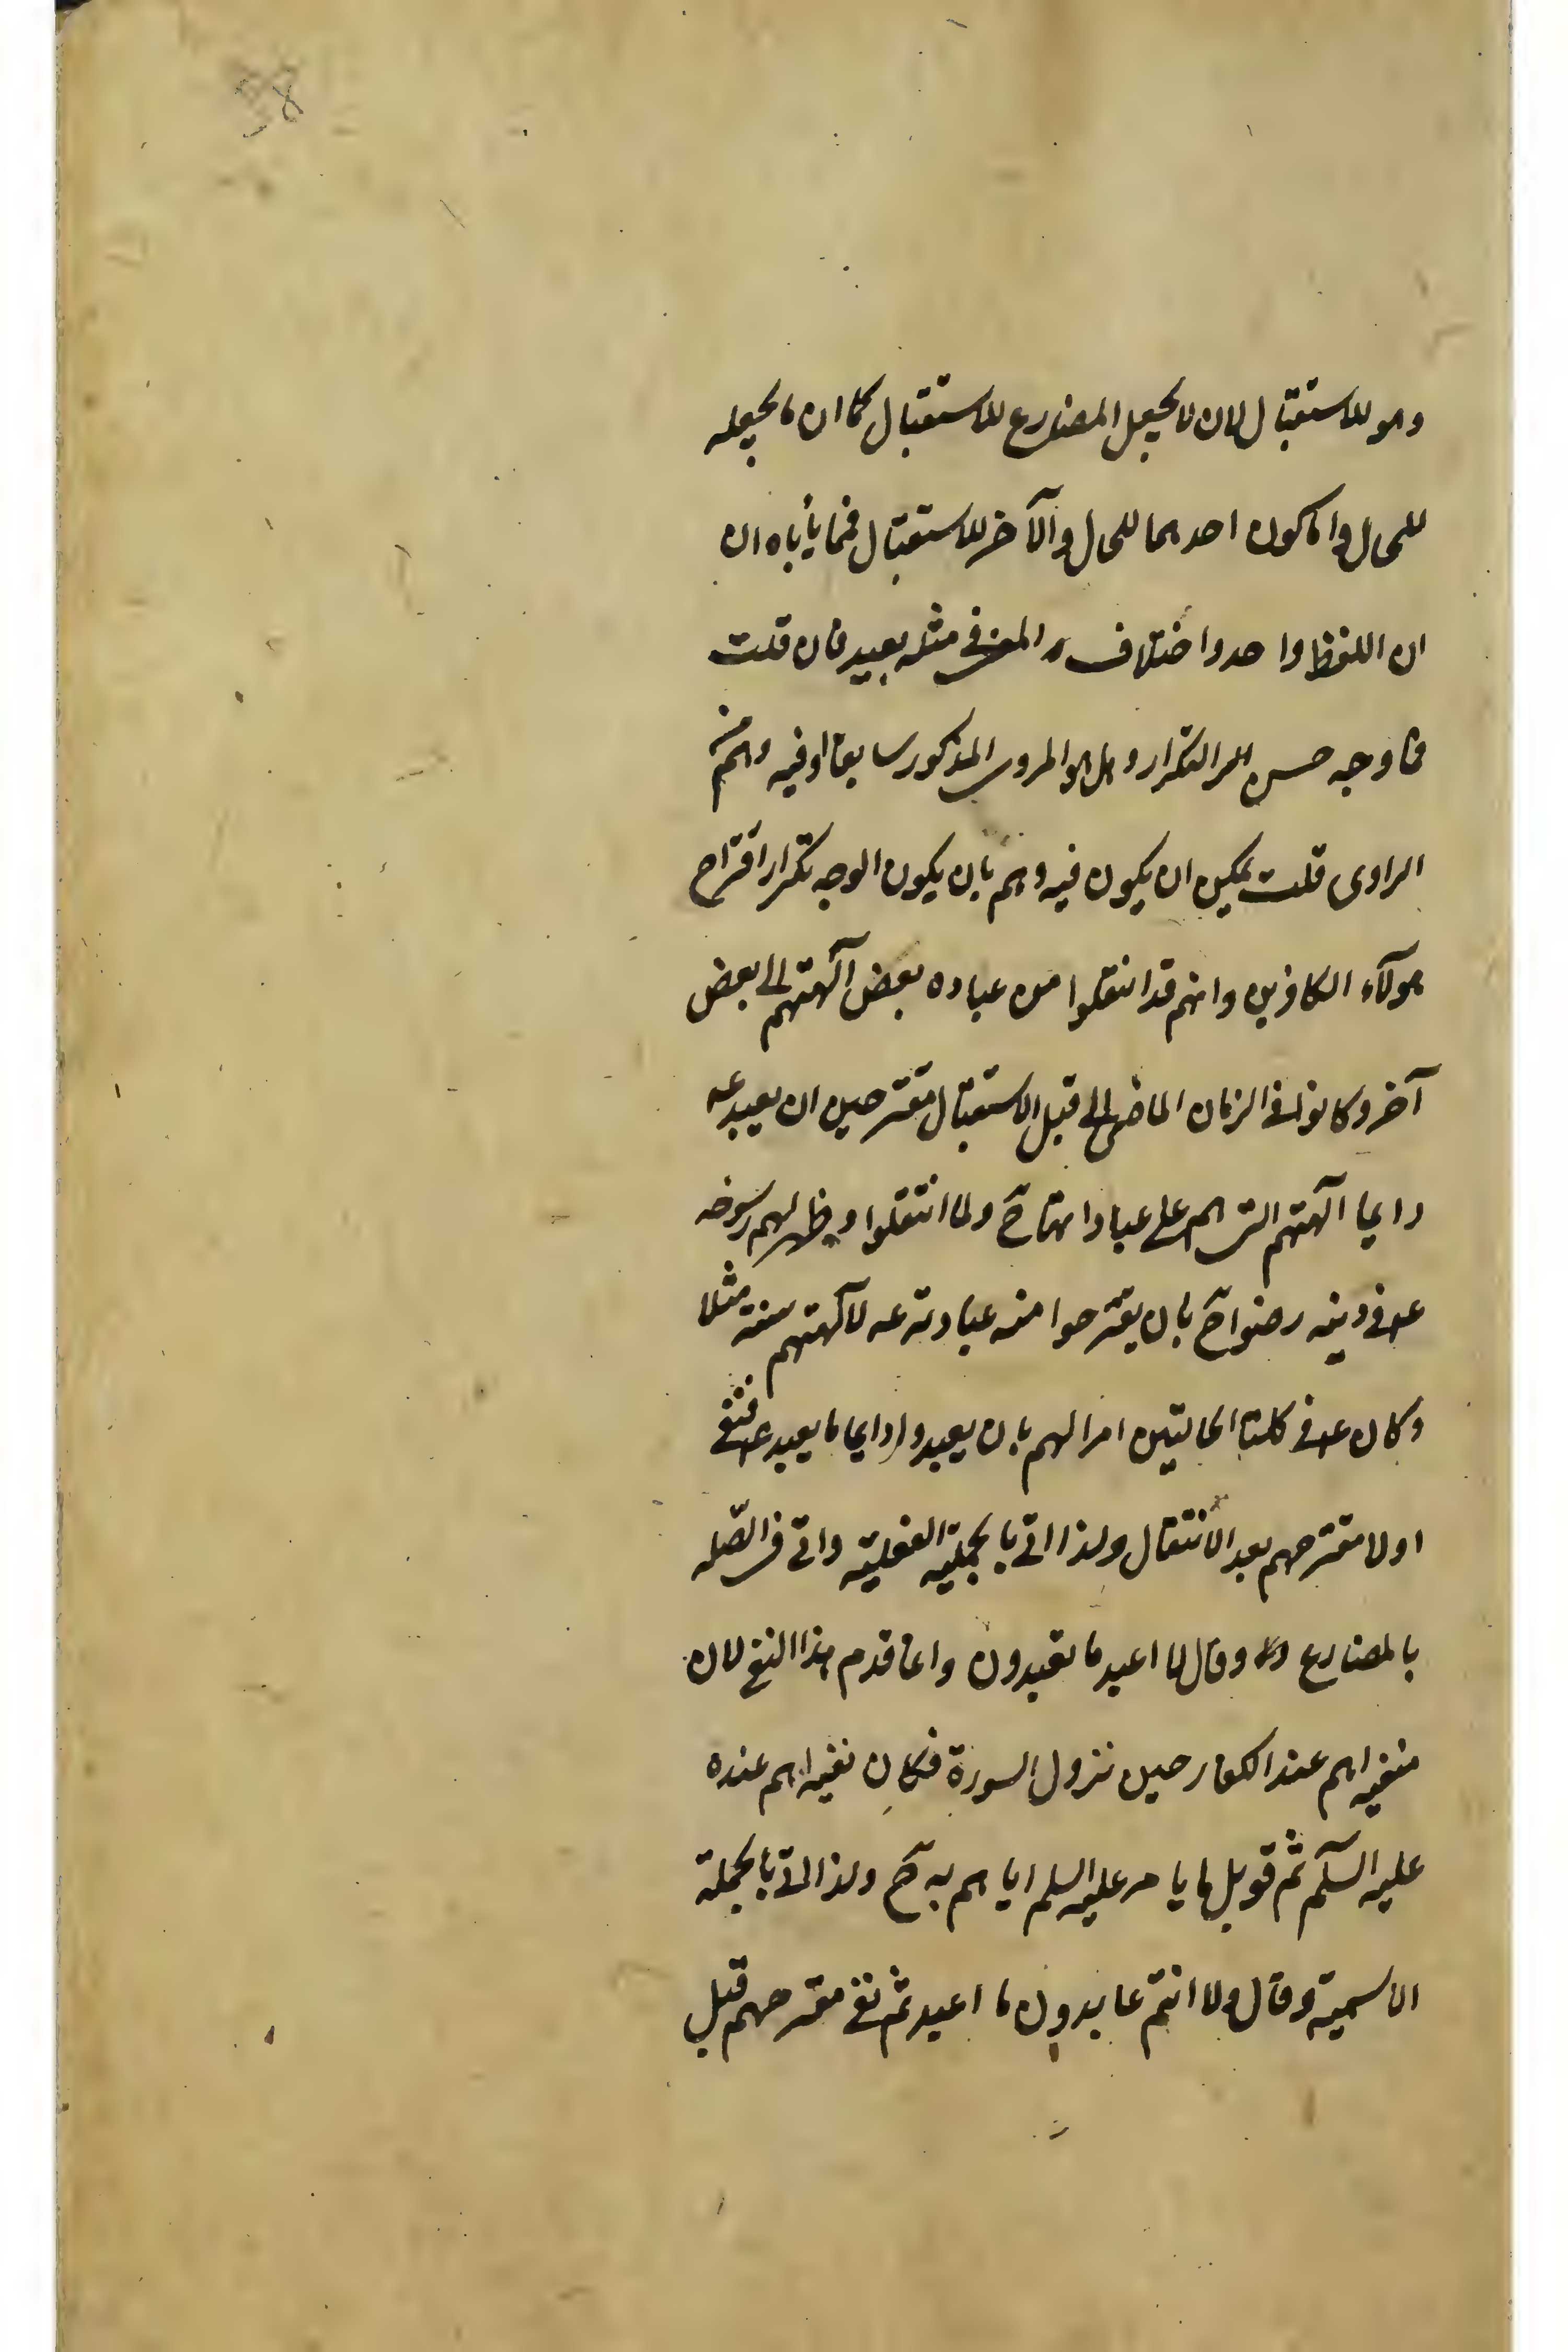 38
وهو للاستقبال لان لا يجعل المضارع للاستقبال كما ان ما يجعله
للحال واما كون احدهما للحال والآخر للاستقبال فمما يأباه ان
ان اللفظ واحد واختلاف المعنى في مثله بعيد فان قلت
فما وجه حسن التكرار وهل هو المروى المذكور سابقا او فيه وهم من
الراوى قلت يمكن ان يكون فيه وهم بان يكون الوجه تكرار اقتراح
هولآء الكافرين وانهم قد انتقلوا من عباده بعض آلهتهم الى بعض
آخر وكانوا في الزمان الماضى الى قبل الاستقبال مقترحين ان يعبد عه
دايما آلهتهم التى هم على عبادتها ح ولما انتقلوا وظهر لهم رسوخه
عم فى دينه رضوا ح بان يقترحوا منه عبادته عه لآلهتهم سنة مثلا
وكان عم فى كلتا الحالتين امرا لهم بان يعبدوا دايما ما يعبد عم فنفى
اولا مقترحهم بعد الانتقال ولذا اتى بالجملية الفعلية واتى فى الصّله
بالمضارع وقال لا اعبد ما تعبدون وانما قدم هذا النفى لان
منفيه اهم عند الكفار حين نزول السورة فكان نفيه اهم عنده
عليه السّلم ثم قوبل ما يامر عليه السلم اياهم به ح ولذا اتى بالجملة
الاسمية وقال ولا انتم عابدون ما اعبد ثم نفى مقترحهم قبل